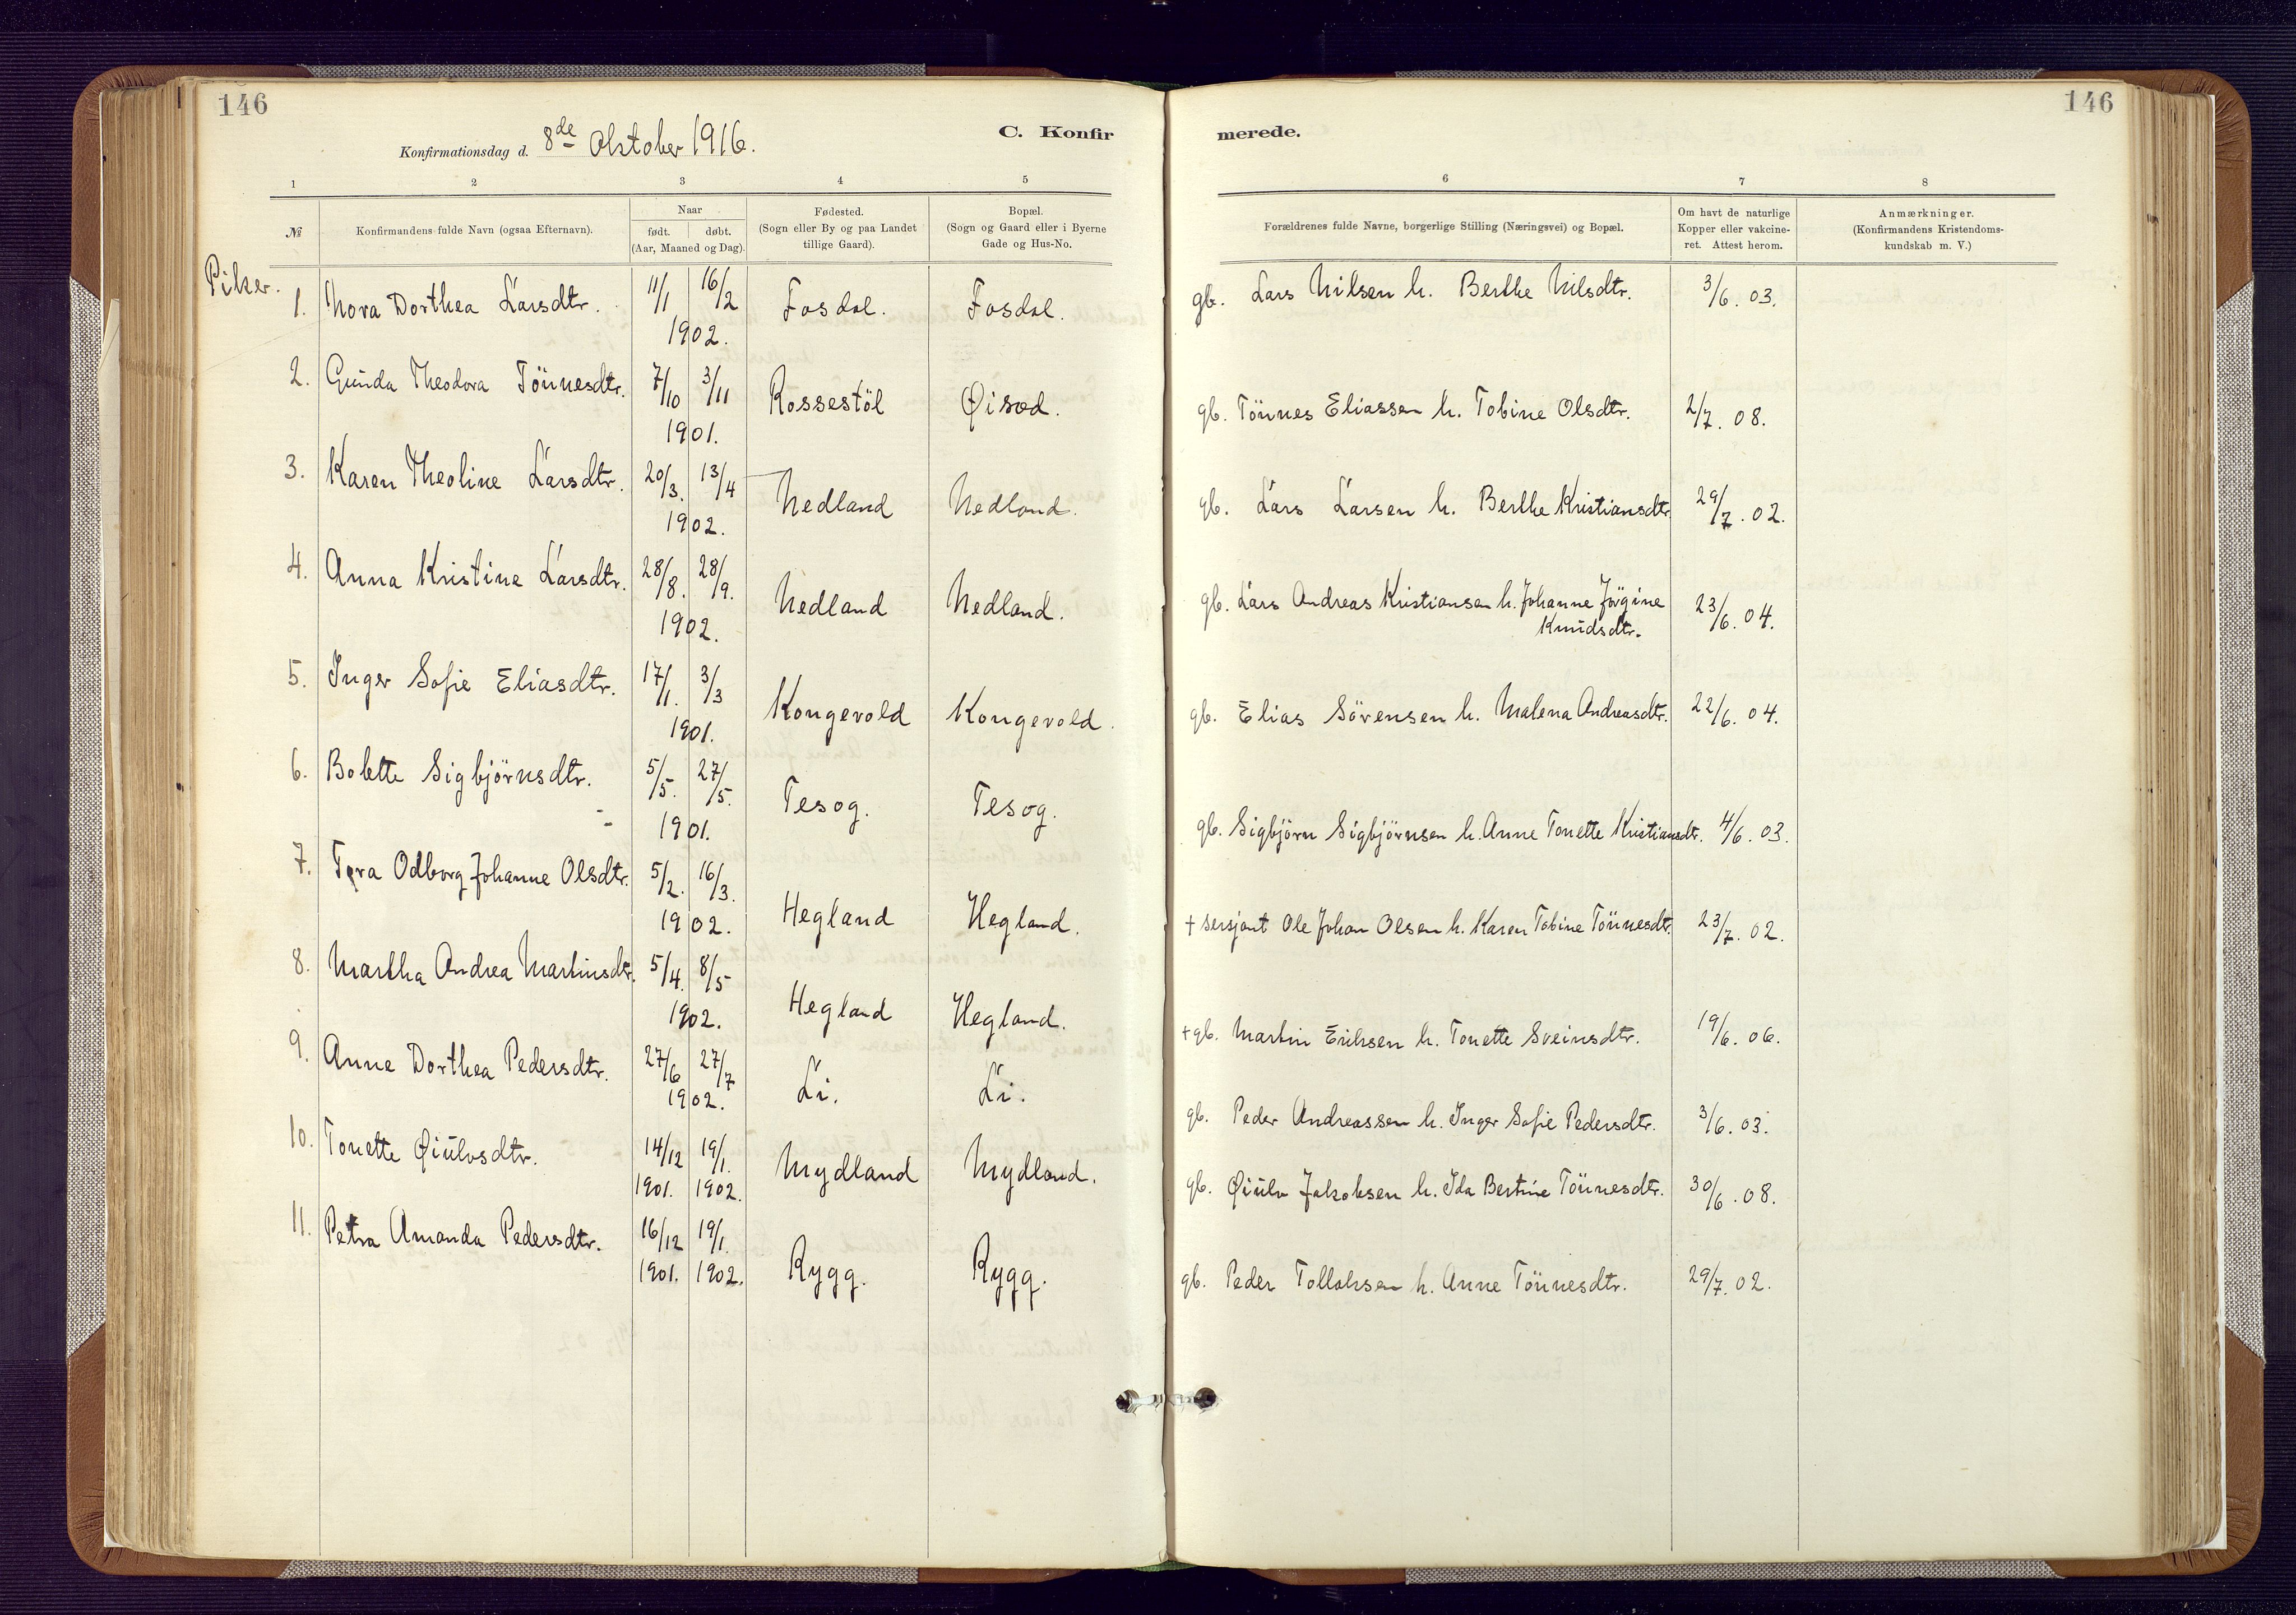 146
146
Konfirmationsdag d. 8de Oktober 1916.
C. Konfirmerede.
1 2 3 4 5 6 7 8
№
Konfirmandens fulde Navn (ogsaa Efternavn).
Naar
født. døbt.
(Aar, Maaned og Dag).
Fødested.
(Sogn eller By og paa Landet
tillige Gaard).
Bopæl.
(Sogn og Gaard eller i Byerne
Gade og Hus-No.
Forældrenes fulde Navne, borgerlige Stilling (Næringsvei) og Bopæl.
Om havt de naturlige
Kopper eller vakcine-
ret. Attest herom.
Anmærkninger.
(Konfirmandens Kristendoms-
kundskab m. V.)
Piker.
1. Nora Dorthea Larsdtr. 11/1 16/2 1902. Fosdal. Fosdal. gb. Lars Nilsen h. Berthe Nilsdtr. 3/6. 03.
2. Gunda Theodora Tönnesdtr. 7/10 3/11 1901. Rossestöl Øisæd. gb. Tönnes Eliassen h. Tobine Olsdtr. 2/7. 08.
3. Karen Theoline Larsdtr. 20/3. 13/4 1902. Nedland Nedland. gb. Lars Larsen h. Berthe Kristiansdtr. 29/7. 02.
4. Anna Kristine Larsdtr. 28/8. 28/9. 1902. Nedland Nedland. gb. Lars Andreas Kristiansen h. Johanne Jörgine
Knudsdtr. 23/6. 04.
5. Inger Sofie Eliasdtr. 17/1. 3/3 1901. Kongevold Kongevold. gb. Elias Sörensen h. Malena Andreasdtr. 22/6. 04.
6. Bolette Sigbjörnsdtr. 5/5. 27/5. 1901. Tesog. Tesog. gb. Sigbjörn Sigbjörnsen h. Anne Tonette Kristiansdtr. 4/6. 03.
7. Tora Odborg Johanne Olsdtr. 5/2. 16/3. 1902. Hegland Hegland. † sersjant Ole Johan Olsen h. Karen Tobine Tönnesdtr. 23/7. 02.
8. Martha Andrea Martinsdtr. 5/4. 8/5 1902. Hegland Hegland. † gb. Martin Eriksen h. Tonette Sveinsdtr. 19/6. 06.
9. Anne Dorthea Pedersdtr. 27/6 27/7 1902. Li. Li. gb. Peder Andreassen h. Inger Sofie Pedersdtr. 3/6. 03.
10. Tonette Øiulvsdtr. 14/12 1901. 19/1. 1902. Mydland Mydland. gb. Øiulv Jakobsen h. Ida Bertine Tönnesdtr. 30/6. 08.
11. Petra Amanda Pedersdtr. 16/12 1901. 19/1. 1902. Rygg. Rygg. gb. Peder Tollaksen h. Anne Tönnesdtr. 29/7. 02.